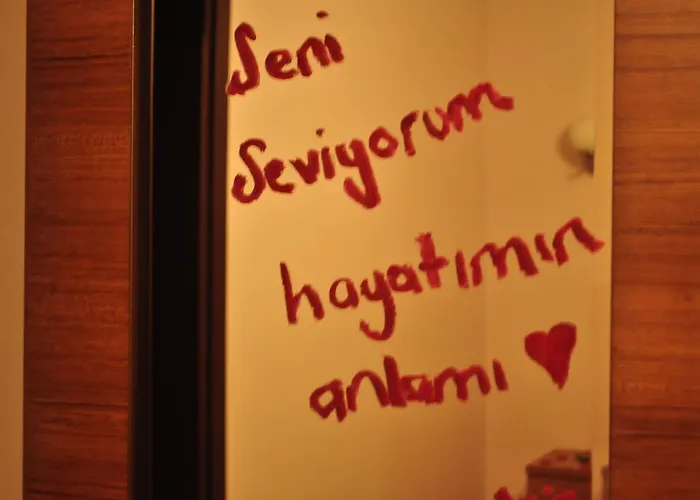 Seni
Seviyorum
hayatımın
anlamı ♥